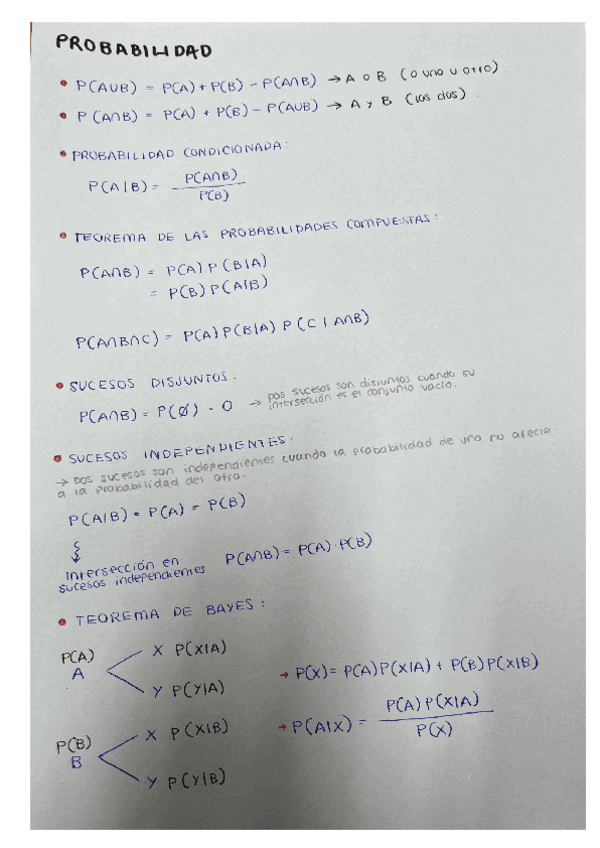 PROBABILIDAD
• P(A∪B) = P(A) + P(B) - P(A∩B) → A o B (o uno u otro).
• P(A∩B) = P(A) + P(B) - P(A∪B) → A y B (los dos).
• PROBABILIDAD CONDICIONADA:
P(A|B) = P(A∩B) / P(B)
• TEOREMA DE LAS PROBABILIDADES COMPUESTAS:
P(A∩B) = P(A) P(B|A)
= P(B) P(A|B)
P(A∩B∩C) = P(A) P(B|A) P(C | A∩B)
• SUCESOS DISJUNTOS:
P(A∩B) = P(∅) = 0 → Dos sucesos son disjuntos cuando su
intersección es el conjunto vacío.
• SUCESOS INDEPENDIENTES:
→ Dos sucesos son independientes cuando la probabilidad de uno no afecta
a la probabilidad del otro.
P(A|B) = P(A) = P(B)
Intersección en
sucesos independientes P(A∩B) = P(A) · P(B)
• TEOREMA DE BAYES:
P(A)
A
X P(X|A)
Y P(Y|A)
P(B)
B
X P(X|B)
Y P(Y|B)
→ P(X) = P(A) P(X|A) + P(B) P(X|B)
→ P(A|X) = P(A) P(X|A) / P(X)